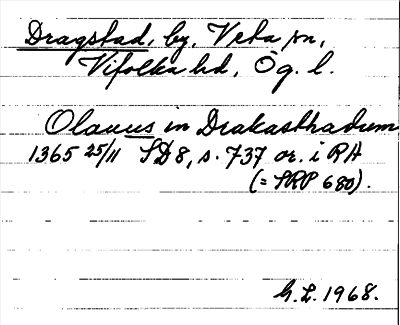 Dragstad, by, Veta sn,
Vifolka hd, Ög. l.
Olauus in Drakasthadum
1365 25/11 SD 8, s. 737 or. i RA
(= SRP 680).
G.L. 1968.